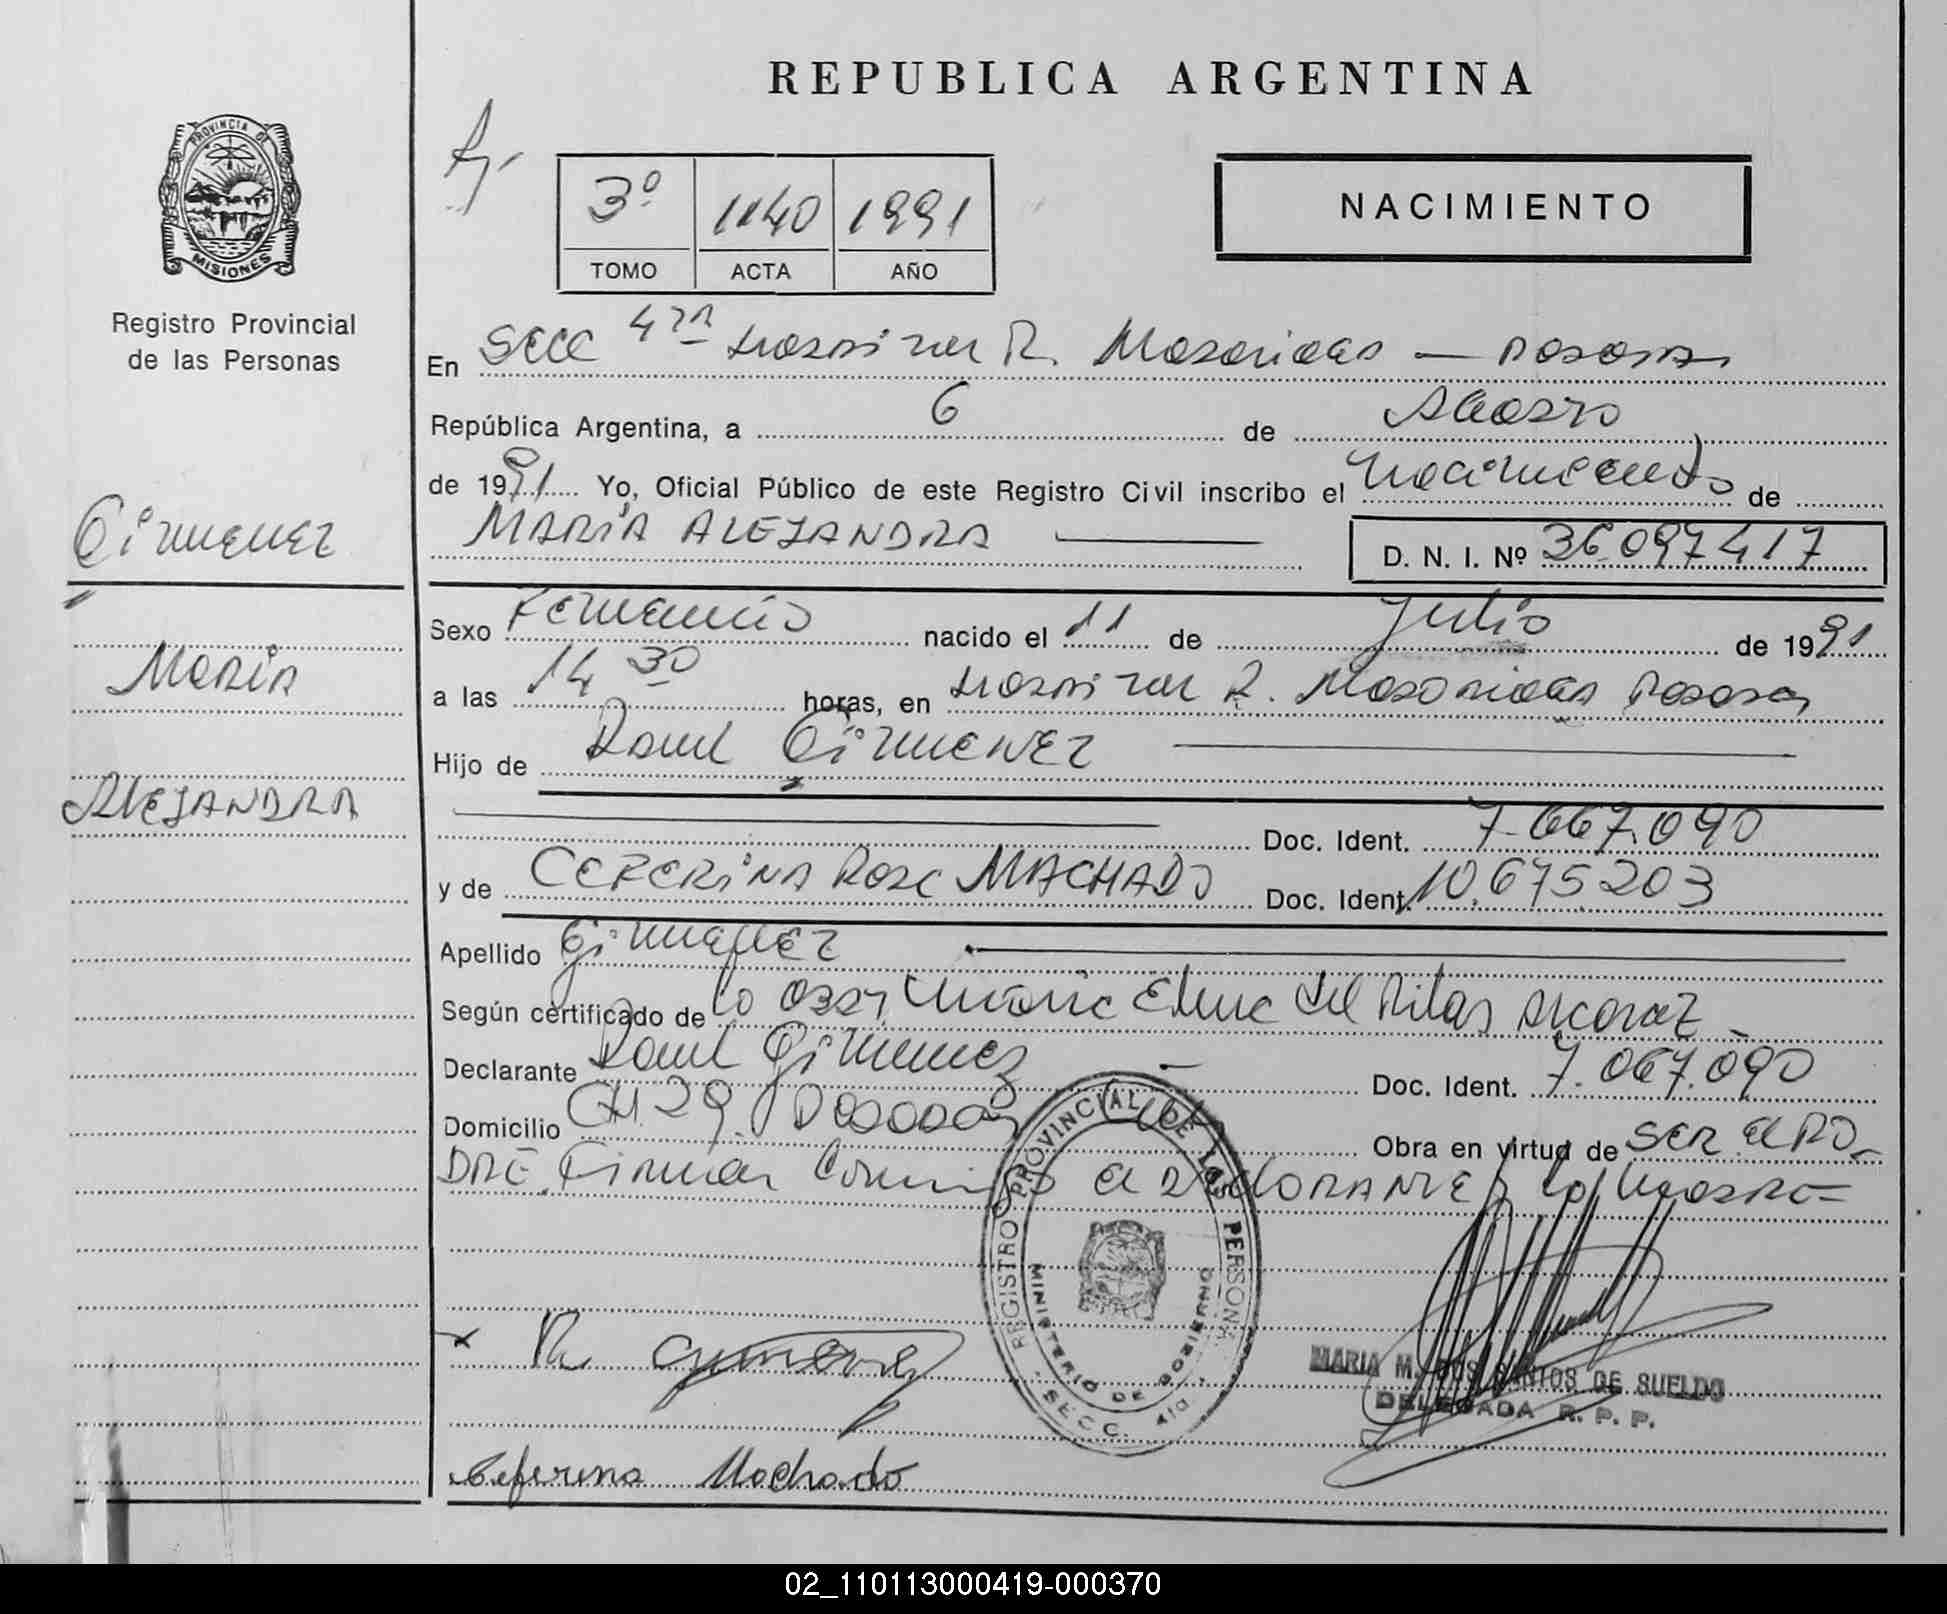 REPUBLICA ARGENTINA
PROVINCIA DE
MISIONES
Registro Provincial
de las Personas
3º 1140 1991
TOMO ACTA AÑO
NACIMIENTO
En SECC 4ta Hospital R. Madariaga — Posadas
República Argentina, a 6 de Agosto
de 1991 Yo, Oficial Público de este Registro Civil inscribo el nacimiento de
MARIA ALEJANDRA
D. N. I. Nº 36097417
Gimenez
Maria
ALEJANDRA
Sexo Femenino nacido el 11 de Julio de 1991
a las 14 30 horas, en Hospital R. Madariaga Posadas
Hijo de Raul Gimenez
Doc. Ident. 7.667.090
y de CEFERINA ROSA MACHADO Doc. Ident. 10.675.203
Apellido Gimenez
Según certificado de la Obst. Maria Elena del Pilar Alcaraz
Declarante Raul Gimenez Doc. Ident. 7.667.090
Domicilio CH. 29. Posadas Obra en virtud de SER el PA-
DRE. Firman Conmigo el DEclORANTE y la Madre=
Ceferina Machado
REGISTRO PROVINCIAL DE LAS PERSONAS
MINISTERIO DE GOBIERNO
SECC. 4ta.
MARIA M. DOS SANTOS DE SUELDO
DELEGADA R. P. P.
02_110113000419-000370